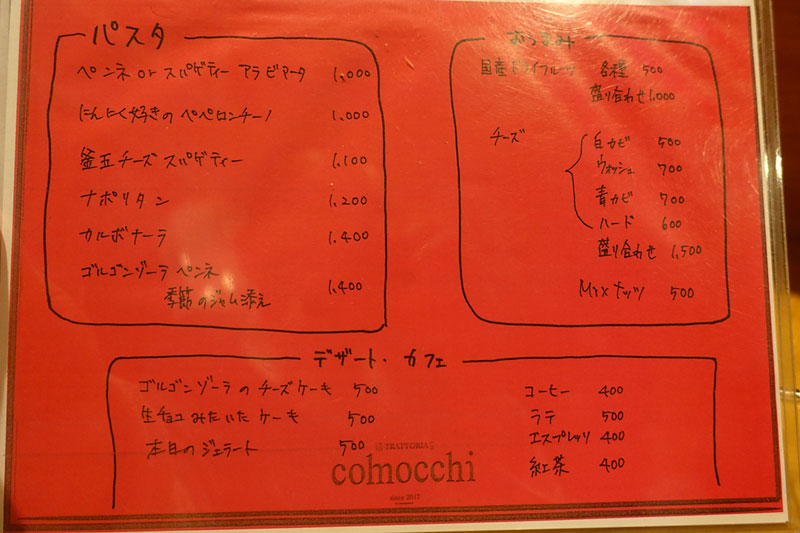 パスタ
ペンネ or スパゲティー アラビアータ 1,000
にんにく好きの ペペロンチーノ 1,000
釜玉チーズ スパゲティー 1,100
ナポリタン 1,200
カルボナーラ 1,400
ゴルゴンゾーラ ペンネ
季節のジャム添え 1,400
おつまみ
国産ドライフルーツ 各種 500
盛り合わせ 1,000
チーズ
白カビ 500
ウォッシュ 700
青カビ 700
ハード 600
盛り合わせ 1,500
Mixナッツ 500
デザート・カフェ
ゴルゴンゾーラのチーズケーキ 500
生チョコみたいなケーキ 500
本日のジェラート 500
コーヒー 400
ラテ 500
エスプレッソ 400
紅茶 400
TRATTORIA
colmocchi
since 2017